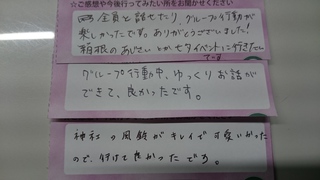 ☆ご感想や今後行ってみたい所をお聞かせください
全員と話せたり、グループ行動が
楽しかったです。ありがとうございました!
箱根のあじさいとか七夕イベントに行きたい
です
グループ行動中、ゆっくりお話が
できて、良かったです。
神社の風鈴がキレイで可愛いかった
ので、行けて良かったです。